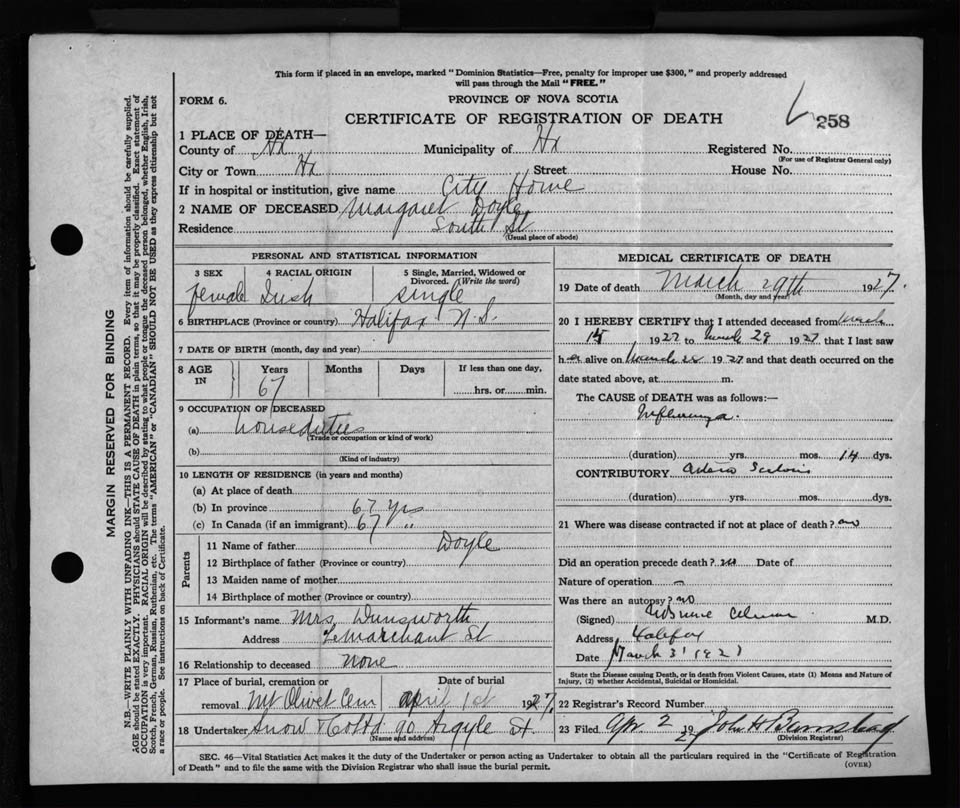 This form if placed in an envelope, marked "Dominion Statistics—Free, penalty for improper use $300," and properly addressed
will pass through the Mail "FREE."
FORM 6.
PROVINCE OF NOVA SCOTIA
CERTIFICATE OF REGISTRATION OF DEATH
258
1 PLACE OF DEATH—
County of Hx Municipality of Hx Registered No.
(For use of Registrar General only)
City or Town Hx Street House No.
If in hospital or institution, give name City Home
2 NAME OF DECEASED Margaret Doyle
Residence South St
(Usual place of abode)
PERSONAL AND STATISTICAL INFORMATION
3 SEX 4 RACIAL ORIGIN 5 Single, Married, Widowed or
Divorced. (Write the word)
female Irish single
6 BIRTHPLACE (Province or country) Halifax N.S.
7 DATE OF BIRTH (month, day and year)
8 AGE IN Years Months Days If less than one day,
67 hrs. or min.
9 OCCUPATION OF DECEASED
(a) houseduties
(Trade or occupation or kind of work)
(b)
(Kind of industry)
10 LENGTH OF RESIDENCE (in years and months)
(a) At place of death
(b) In province 67 yrs
(c) In Canada (if an immigrant) 67 "
Parents
11 Name of father Doyle
12 Birthplace of father (Province or country)
13 Maiden name of mother
14 Birthplace of mother (Province or country)
15 Informant's name Mrs Dunsworth
Address LeMarchant St
16 Relationship to deceased None
17 Place of burial, cremation or Date of burial
removal Mt Olivet Cem April 1st 1927
18 Undertaker Snow & Co Ltd 90 Argyle St.
(Name and address)
MEDICAL CERTIFICATE OF DEATH
19 Date of death March 29th 1927.
(Month, day and year)
20 I HEREBY CERTIFY that I attended deceased from March
15 1927 to March 29 1927 that I last saw
h er alive on March 28 1927 and that death occurred on the
date stated above, at m.
The CAUSE of DEATH was as follows:—
Influenza.
(duration) yrs. mos. 14 dys.
CONTRIBUTORY.
(duration) yrs. mos. dys.
21 Where was disease contracted if not at place of death? no
Did an operation precede death? no Date of
Nature of operation —
Was there an autopsy? no
(Signed) M.D.
Address Halifax
Date March 31 1927
State the Disease causing Death, or in death from Violent Causes, state (1) Means and Nature of
Injury, (2) whether Accidental, Suicidal or Homicidal.
22 Registrar's Record Number
23 Filed Apr 2 27
(Division Registrar)
SEC. 46—Vital Statistics Act makes it the duty of the Undertaker or person acting as Undertaker to obtain all the particulars required in the "Certificate of Registration
of Death" and to file the same with the Division Registrar who shall issue the burial permit.
(OVER)
MARGIN RESERVED FOR BINDING
N.B.—WRITE PLAINLY WITH UNFADING INK—THIS IS A PERMANENT RECORD. Every item of information should be carefully supplied.
AGE should be stated EXACTLY. PHYSICIANS should STATE CAUSE OF DEATH in plain terms, so that it may be properly classified. Exact statement of
OCCUPATION is very important. RACIAL ORIGIN will be described by stating to what people or tongue the deceased person belonged, whether English, Irish,
Scotch, French, German, Russian, Ruthenian, etc. The terms "AMERICAN" or "CANADIAN" SHOULD NOT BE USED as they express citizenship but not
a race or people. See instructions on back of Certificate.